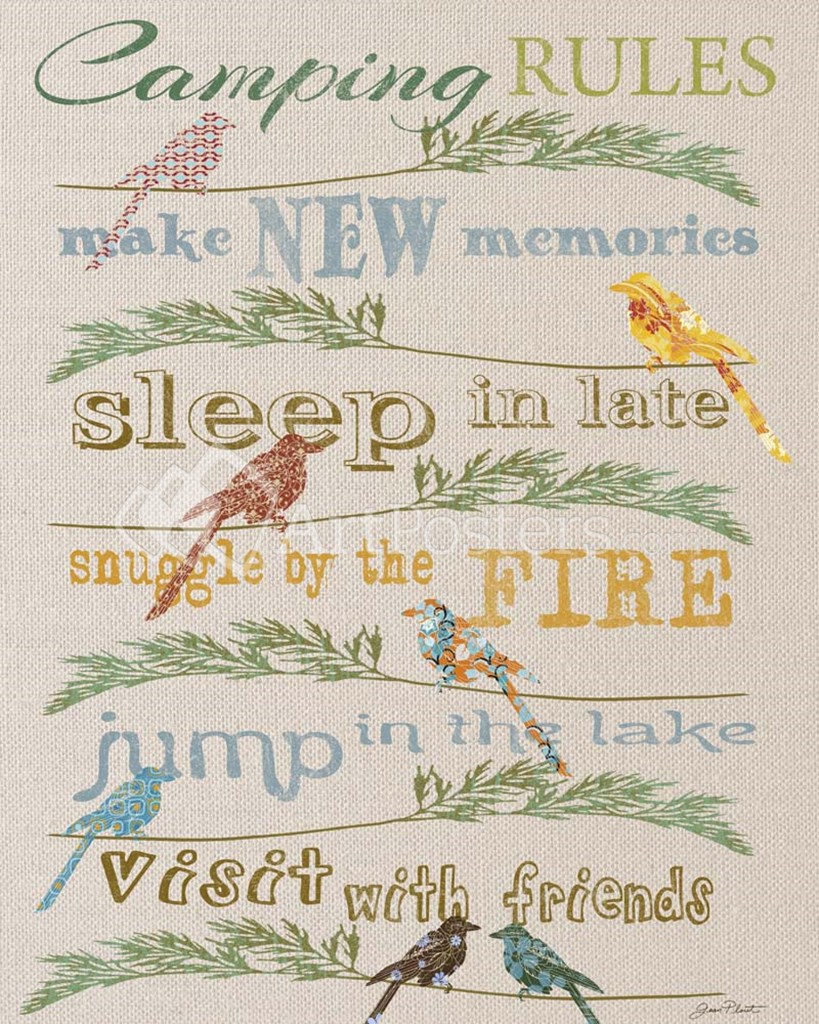 Camping RULES
make NEW memories
sleep in late
snuggle by the FIRE
ArtPosters.com
jump in the lake
visit with friends
Jean Plout